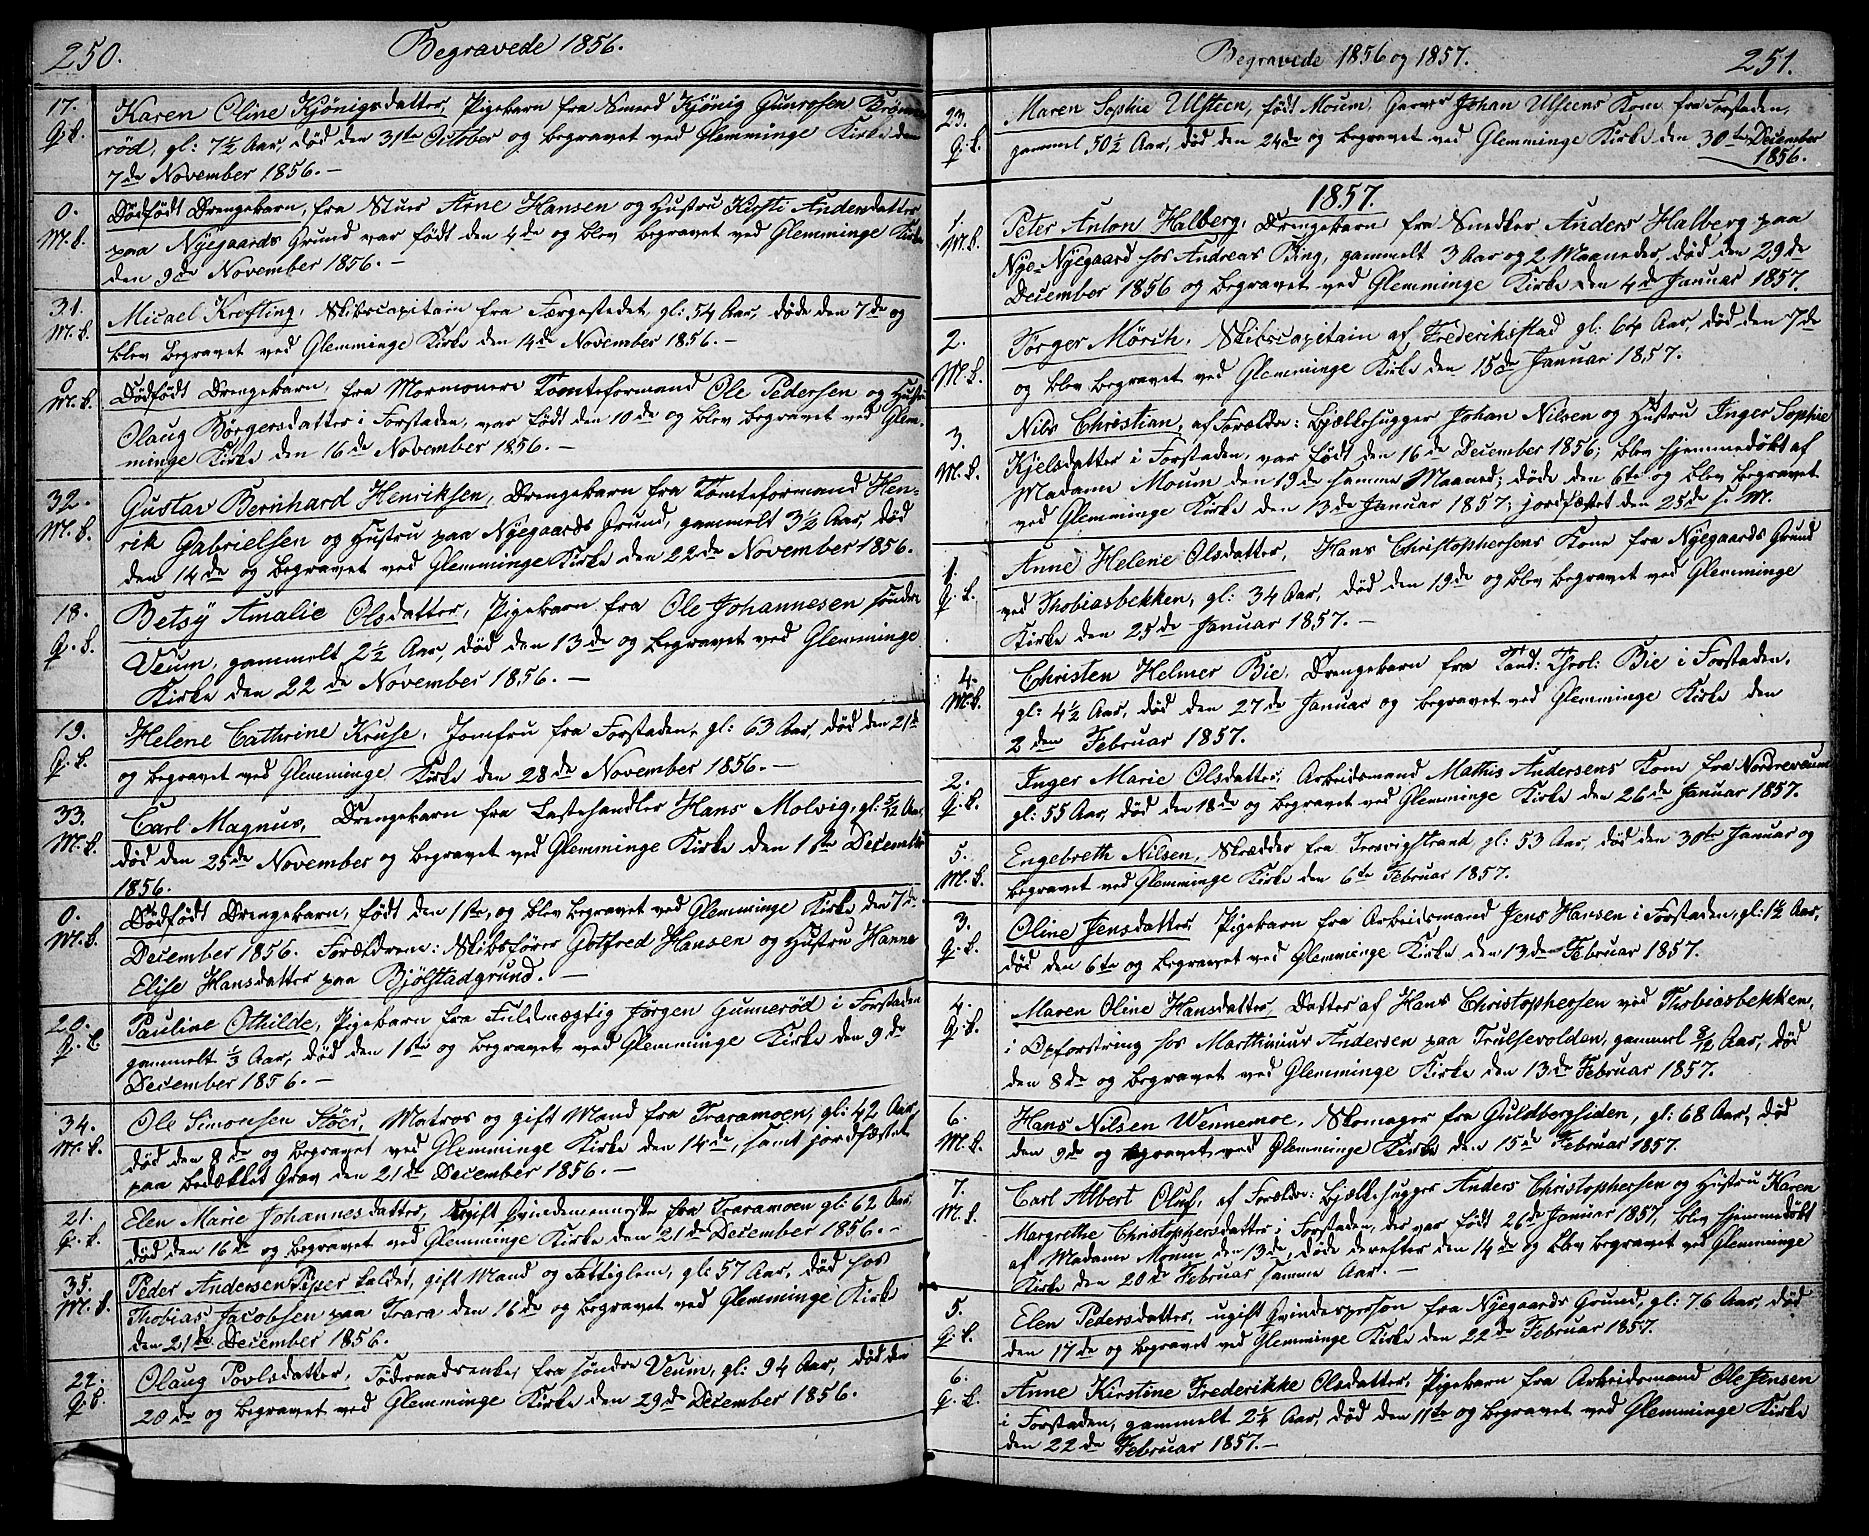 250.
Begravede 1856.
17.
Q.k.
Karen Oline Kjönigsdatter, Pigebarn fra Smed Kjönig
röd, gl: 7½ Aar, död den 31te October og begravet ved Glemminge Kirke den
7de November 1856. –
0.
M.k.
Dödfödt Drengebarn, fra Stuer Arne Hansen og Hustru Kirsti Andersdatter
paa Nyegaards Grund var födt den 4de og blev begravet ved Glemminge Kirke
den 9de November 1856. –
31.
M.k.
Micael Krefting, Skibscapitain fra Færgestedet, gl: 54 Aar, döde den 7de og
blev begravet ved Glemminge Kirke den 14de November 1856. –
0.
M.k.
Dödfödt Drengebarn, fra Mormonere Tomteformand Ole Pedersen og Hustru
Olaug Börgersdatter i Forstaden, var födt den 10de og blev begravet ved Glem-
minge Kirke den 16de November 1856. –
32.
M.k.
Gustav Bernhard Henriksen, Drengebarn fra Tomteformand Hen-
rik Gabrielsen og Hustru paa Nyegaards Grund, gammelt 3½ Aar, död
den 14de og begravet ved Glemminge Kirke den 22de November 1856.
18.
Q.k.
Betsÿ Amalie Olsdatter, Pigebarn fra Ole Johannesen söndre
Veum, gammelt 2½ Aar, död den 13de og begravet ved Glemminge
Kirke den 22de November 1856. –
19.
Q.k.
Helene Cathrine Kruse, Jomfru fra Forstaden, gl: 63 Aar, död den 21de
og begravet ved Glemminge Kirke den 28de November 1856. –
33.
M.k.
Carl Magnus, Drengebarn fra Lastehandler Hans Molvig, gl: 5/12 Aar,
död den 25de November og begravet ved Glemminge Kirke den 1ste December
1856.
0.
M.k.
Dödfödt Drengebarn, födt den 1ste, og blev begravet ved Glemminge Kirke den 7de
December 1856. Forældrene: Skibsförer Gotfred Hansen og Hustru Hanne
Elise Hansdatter paa Bjölstadgrund. –
20.
Q.k
Pauline Othilde, Pigebarn fra Fuldmægtig Jörgen Gunneröd i Forstaden
gammelt ⅓ Aar, död den 1ste og begravet ved Glemminge Kirke den 9de
December 1856. –
34.
M.k.
Ole Simonsen Stöer, Matros og gift Mand fra Traramoen, gl: 42 Aar,
död den 8de og begravet ved Glemminge Kirke den 14de, samt jordfæstet
paa bedækket Grav den 21de December 1856. –
21.
Q.k.
Elen Marie Johannesdatter, ugift Qvindemenneske fra Traramoen gl: 62 Aar,
död den 16de og begravet ved Glemminge Kirke den 21de December 1856. –
35.
M.k.
Peder Andersen Piper kaldet, gift Mand og Fattiglem, gl: 57 Aar, död hos
Thobias Jacobsen paa Trara den 16de og begravet ved Glemminge Kirke
den 21de December 1856.
22.
Q.k.
Olaug Povlsdatter, Föderaadsenke, fra söndre Veum, gl: 94 Aar, död den
20de og begravet ved Glemminge Kirke den 29de December 1856.
Begravede 1856 og 1857.
251.
23.
Q.k.
Maren Sophie Ulsteen, födt Moum, Garver Johan Ulsteens Kone fra Forstaden,
gammel 50½ Aar, död den 24de og begravet ved Glemminge Kirke den 30te December
1856.
1857.
1.
M.k.
Peter Anton Halberg, Drengebarn fra Snedker Anders Halberg paa
Nye-Nyegaard hos Andreas Bing, gammelt 3 Aar og 2 Maaneder, död den 29de
December 1856 og begravet ved Glemminge Kirke den 4de Januar 1857.
2.
M.k.
Torger Mörch, Skibscapitain af Frederikstad gl: 64 Aar, död den 7de
og blev begravet ved Glemminge Kirke den 15de Januar 1857.
3.
M.k.
Nils Christian, af Forældre: Bjælkehugger Johan Nilsen og Hustru Inger Sophie
Kjelsdatter i Forstaden, var födt den 16de December 1856; blev hjemmedöbt af
Madame Moum den 19de samme Maaned; döde den 6te og blev begravet
ved Glemminge Kirke den 13de Januar 1857; jordfæstet den 25de s. M.
1.
Q.k.
Anne Helene Olsdatter, Hans Christophersens Kone fra Nyegaards Grund
ved Thobiasbekken, gl: 34 Aar, död den 19de og blev begravet ved Glemminge
Kirke den 25de Januar 1857. –
4.
M.k.
Christen Helmer Bie, Drengebarn fra Cand: Theol: Bie i Forstaden,
gl: 4½ Aar, död den 27de Januar og begravet ved Glemminge Kirke den
2den Februar 1857.
2.
Q.k.
Inger Marie Olsdatter, Arbeidsmand Mathis Andersens Kone fra Nordreveum
gl: 55 Aar, död den 18de og begravet ved Glemminge Kirke den 26de Januar 1857.
5.
M.k.
Engebreth Nilsen, Skrædder fra Trosvigstrand gl: 53 Aar, död den 30te Januar og
begravet ved Glemminge Kirke den 6te Februar 1857.
3.
Q.k.
Oline Jensdatter, Pigebarn fra Arbeidsmand Jens Hansen i Forstaden, gl: 1½ Aar,
död den 6te og begravet ved Glemminge Kirke den 13de Februar 1857.
4.
Q.k.
Maren Oline Hansdatter, Datter af Hans Christophersen ved Thobiasbekken,
i Opfostring hos Marthinius Andersen paa Trulsevolden, gammel 8/12 Aar, död
den 8de og begravet ved Glemminge Kirke den 13de Februar 1857.
6.
M.k.
Hans Nilsen Wennemoe, Skomager fra Guldbergsiden, gl: 68 Aar, död
den 9de og begravet ved Glemminge Kirke den 15de Februar 1857.
7.
M.k.
Carl Albert Oluf, af Forældre: Bjælkehugger Anders Christophersen og Hustru Karen
Margrethe Christophersdatter i Forstaden, der var födt 26de Januar 1857, blev hjemmedöbt
af Madame Moum den 13de, döde derefter den 14de og blev begravet ved Glemminge
Kirke den 20de Februar samme Aar. –
5.
Q.k.
Elen Pedersdatter, ugift Qvindeperson fra Nyegaards Grund, gl: 76 Aar, död
den 17de og begravet ved Glemminge Kirke den 22de Februar 1857.
6.
Q.k.
Anne Kirstine Frederikke Olsdatter, Pigebarn fra Arbeidsmand Ole Jensen
i Forstaden, gammelt 2¼ Aar, död den 11te og begravet ved Glemminge Kirke
den 22de Februar 1857. –